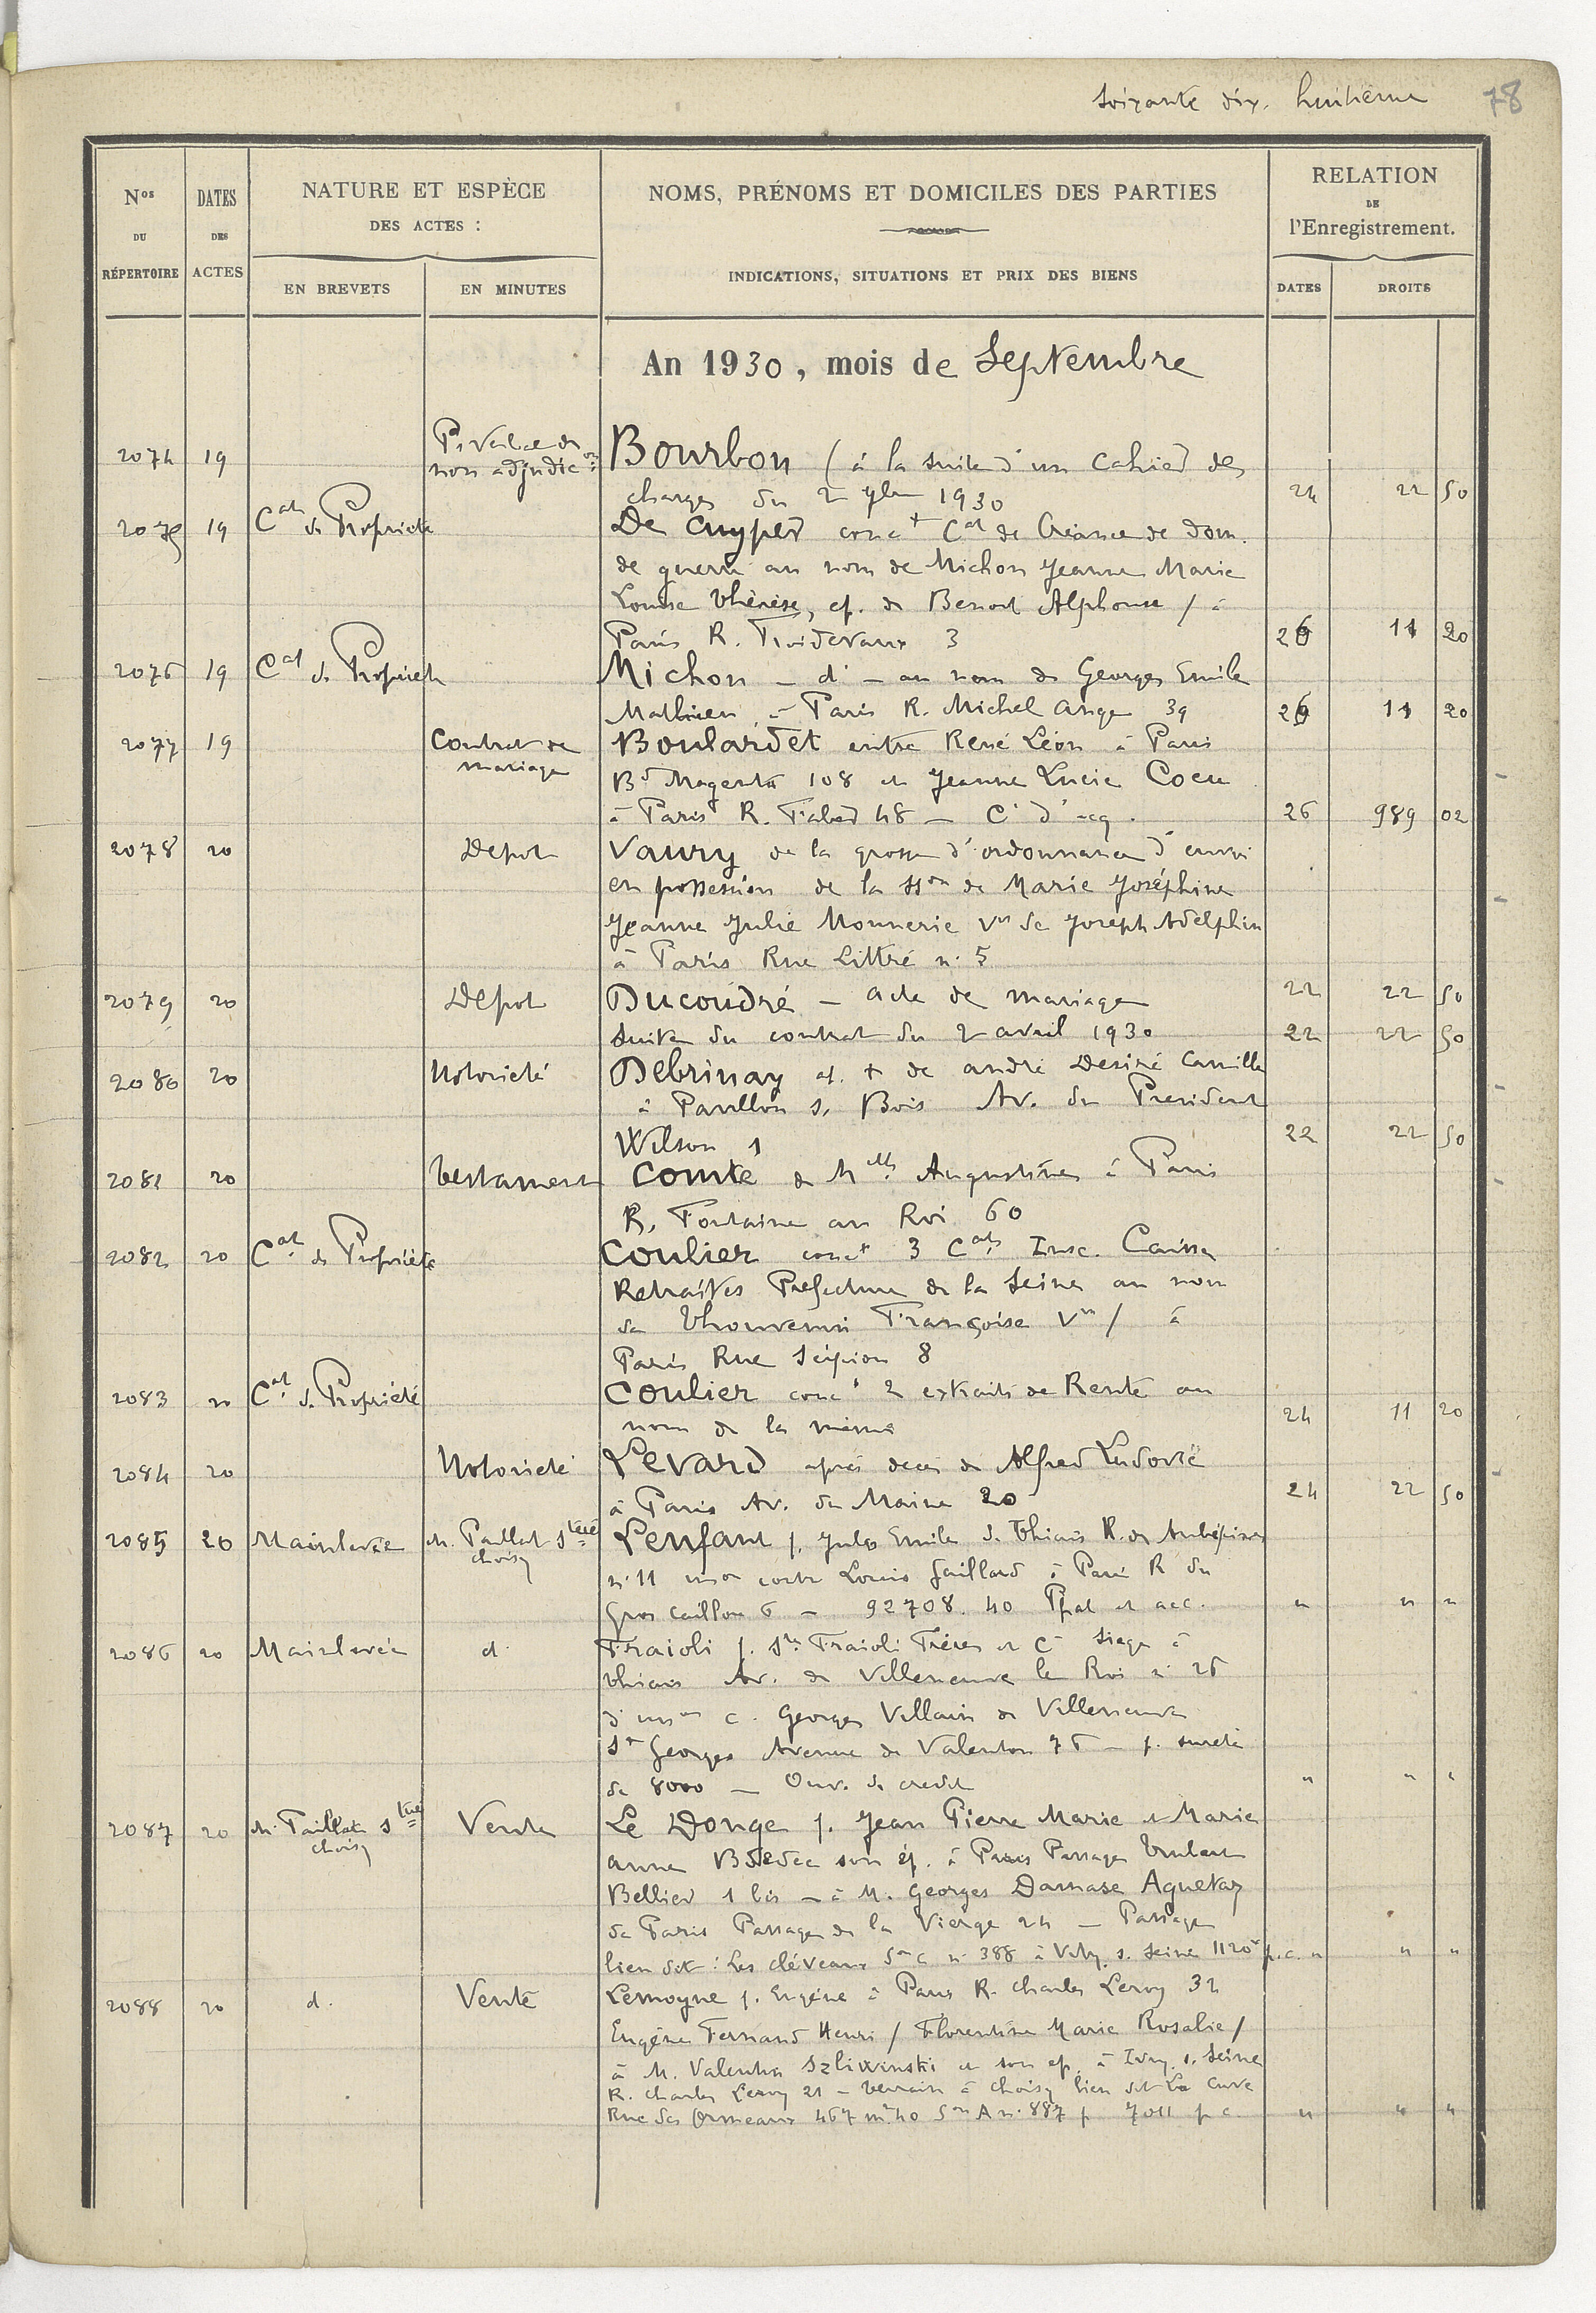 Soixante dix. huitième 78
Nos DU RÉPERTOIRE
DATES DES ACTES
NATURE ET ESPÈCE DES ACTES :
EN BREVETS
EN MINUTES
NOMS, PRÉNOMS ET DOMICILES DES PARTIES
INDICATIONS, SITUATIONS ET PRIX DES BIENS
RELATION DE l'Enregistrement.
DATES
DROITS
An 1930, mois de Septembre
2074 19 Ps Verbal de non adjudicon Bourbon (à la suite d'un Cahier des
charges du 2 9bre 1930 24 22 50
2075 19 Cat de Propriété De Cuyper conct Cat de Créance de dom.
de guerre au nom de Michon Jeanne Marie
Louise Thérèse, ep. de Benoit Alphonse / à
Paris R. Froidevaux 3 26 11 20
2076 19 Cat de Propriété Michon - d° - au nom de Georges Emile
Mathieu, à Paris R. Michel Ange 39 26 11 20
2077 19 Contrat de mariage Boulardet entre René Léon à Paris
Bd Magenta 108 et Jeanne Lucie Coeu
à Paris R. Fabert 48 - Cé d'acq. 26 989 02
2078 20 Depot Vaury de la grosse d'ordonnance d'envoi
en possession de la sson de Marie Joséphine
Jeanne Julie Monnerie Vve de Joseph Adelphin
à Paris Rue Littré n° 5 22 22 50
2079 20 Depot Ducoudré - acte de mariage
suite du contrat du 2 avril 1930 22 22 50
2080 20 Notoriété Debrinay ap. + de andré Desiré Camille
à Pavillon s. Bois Av. du President
Wilson 1 22 22 50
2081 20 Testament Comte de Mlle Augustine à Paris
R. Fontaine au Roi 60
2082 20 Cat de Propriété Coulier conct 3 Cats Insc. Caisse
Retraites Prefecture de la Seine au nom
de Thouvenin Françoise Vve / à
Paris Rue Scipion 8
2083 20 Cat de Propriété Coulier conct 2 extraits de Rente au
nom de la même 24 11 20
2084 20 Notoriété Levard après deces de Alfred Ludovic
à Paris Av. du Maine 20 24 22 50
2085 20 Mainlevée M. Paillat Stué Choisy Lenfant p. Jules Emile de Thiais R. des Aubépines
n° 11 inson contre Louis Gaillard à Paris R du
Gros Caillou 6 - 92708.40 Ppal et acc. " " "
2086 20 Mainlevée d° Fraioli p. Sté Fraioli Frères et Cie siege à
Thiais Av. de Villeneuve le Roi n° 26
d'inson c. Georges Villain de Villeneuve
St Georges Avenue de Valenton 76 - p. sureté
de 8000 - Ouv. de credit " " "
2087 20 M. Paillat Stué Choisy Vente Le Donge p. Jean Pierre Marie et Marie
anne son ép. à Paris Passage
Bellier 1 bis - à M. Georges Damase Aguetaz
de Paris Passage de la Vierge 24 - Passage
lieu dit : Les Son C n° 388 à Vitry s. Seine 1120 p.c. " " "
2088 20 d° Vente Lemoyne p. Eugène à Paris R. Charles Leroy 32
Eugène Fernand Henri / Florentine Marie Rosalie /
à M. Valentin Szliwinski et son ep. à Ivry s. Seine
R. Charles Leroy 21 - Terrain à Choisy lieu dit La Cuve
Rue des Ormeaux 467 m² 40 Son A n° 887 p 7011 p c. " " "